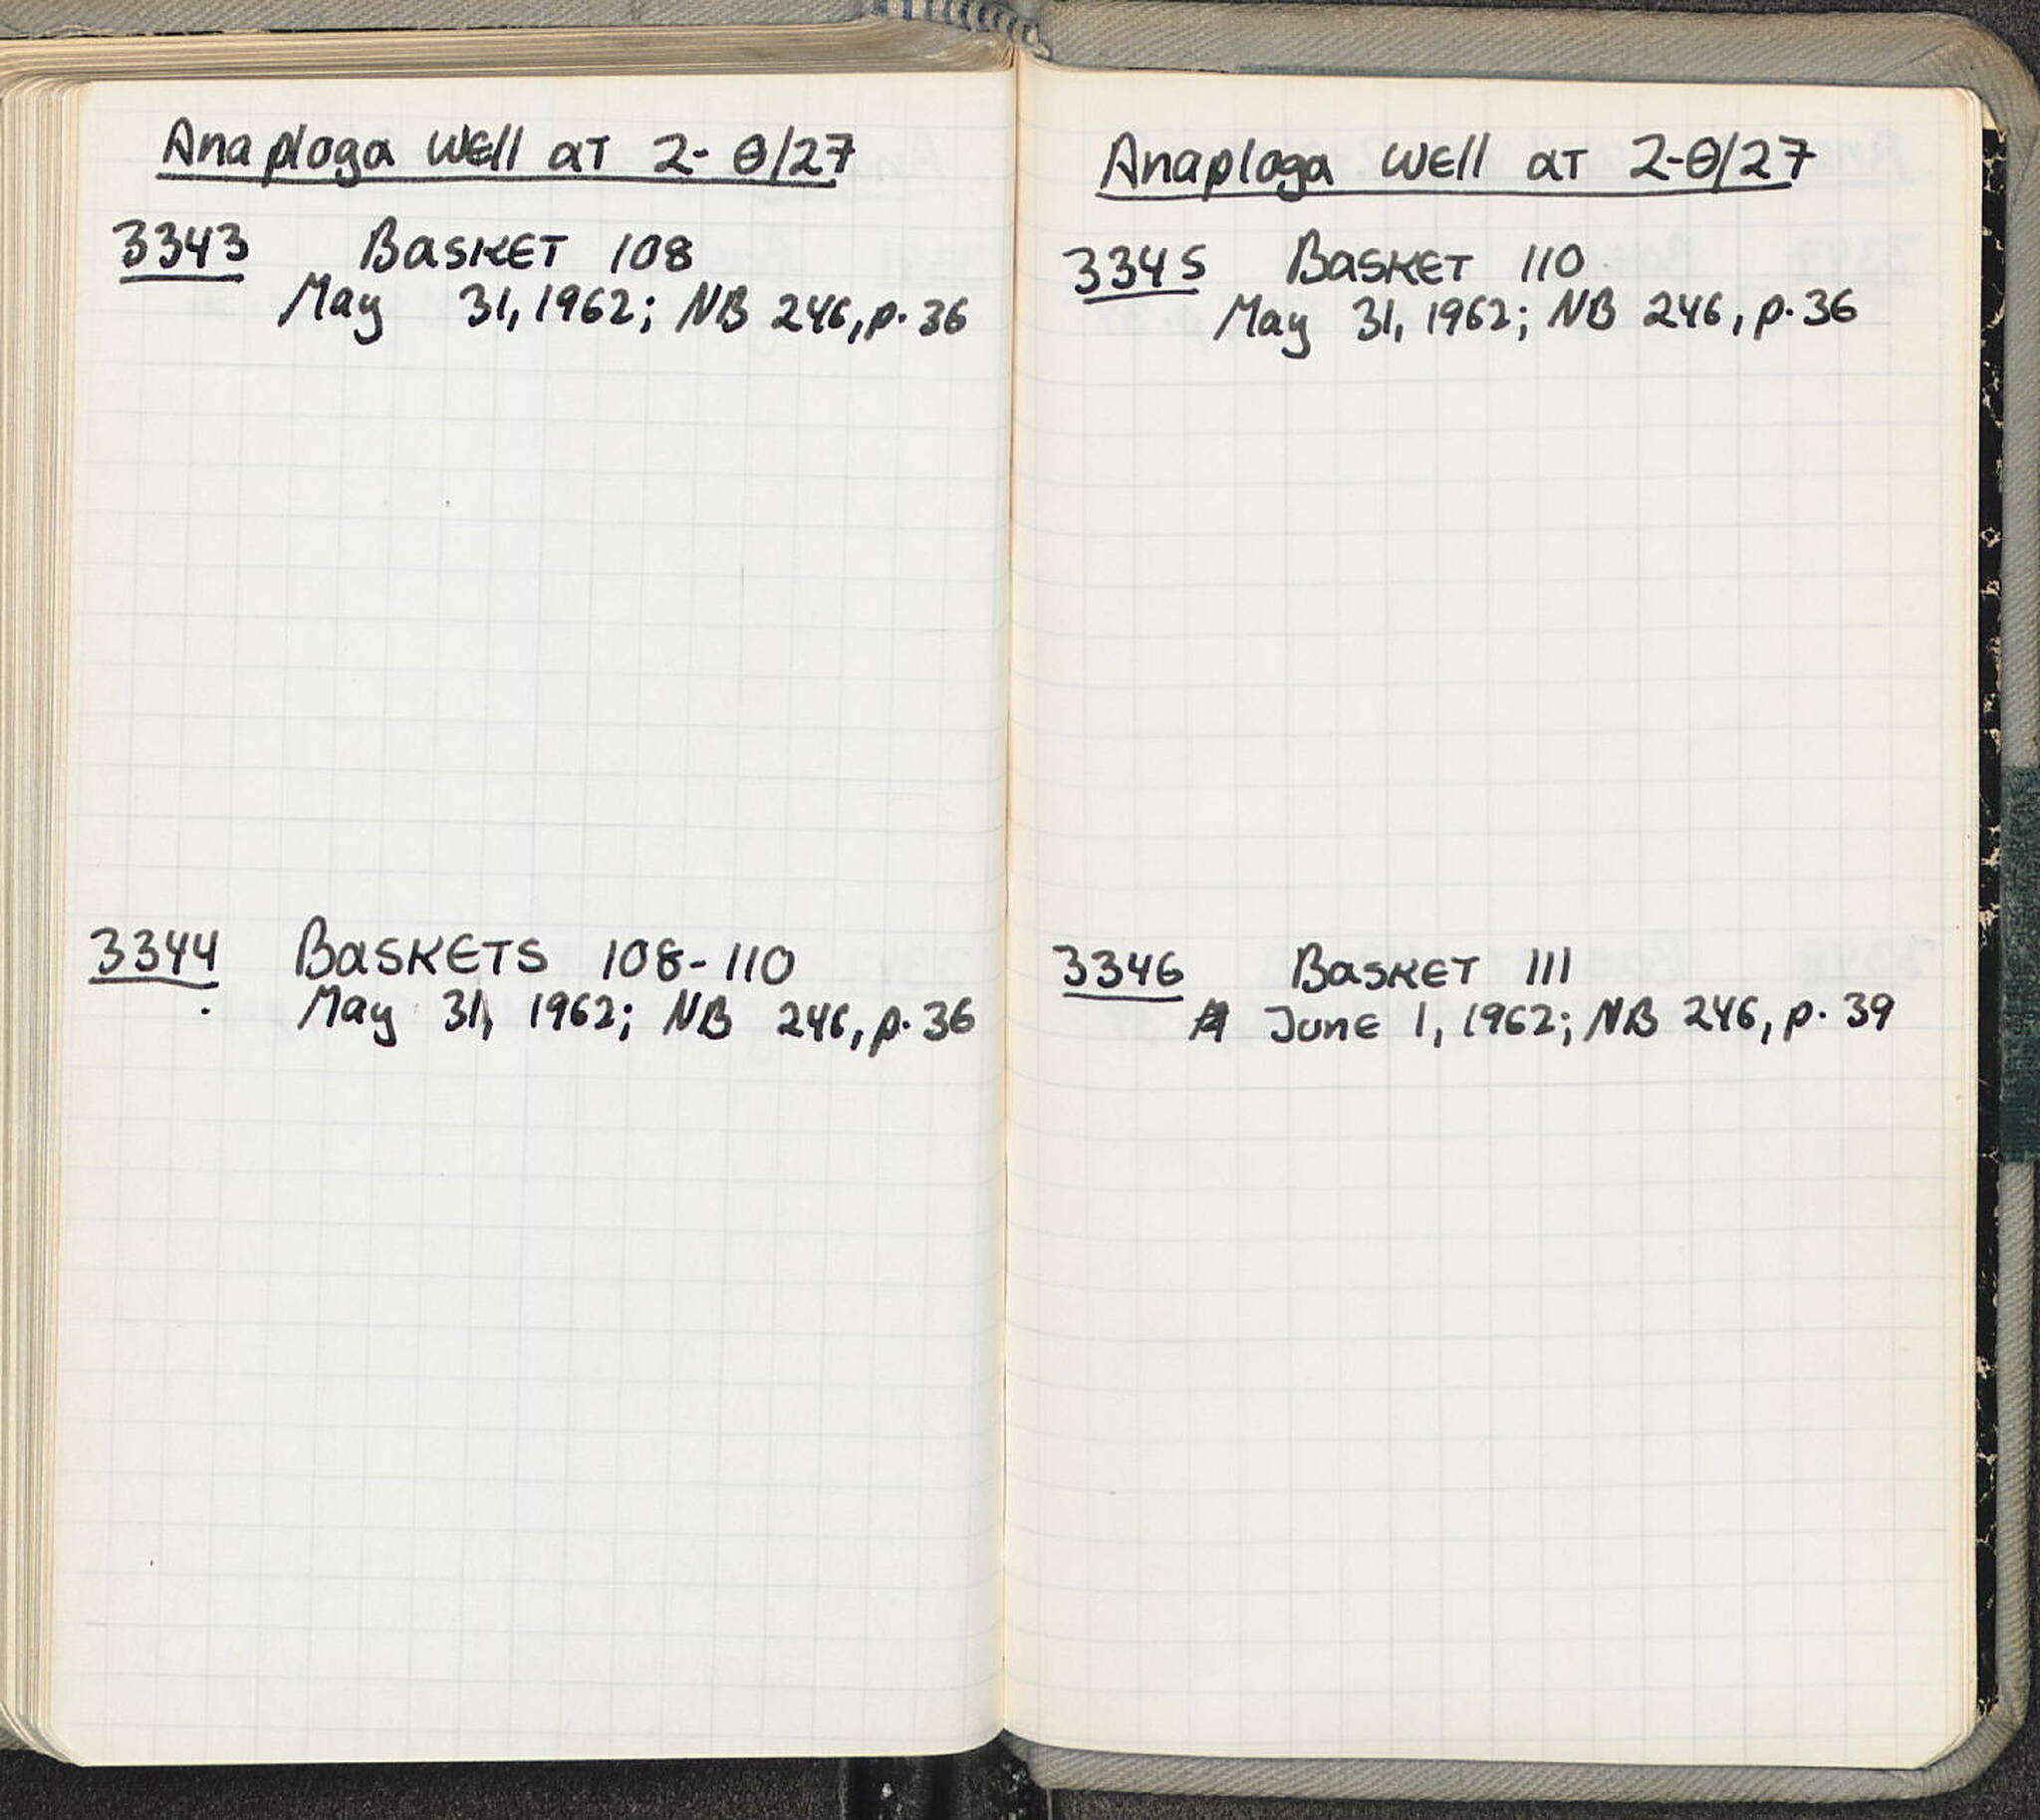 Anaploga Well at 2-Θ/27
3343 Basket 108
May 31, 1962; NB 246, p. 36
3344 Baskets 108-110
May 31, 1962; NB 246, p. 36
Anaploga Well at 2-Θ/27
3345 Basket 110
May 31, 1962; NB 246, p. 36
3346 Basket 111
June 1, 1962; NB 246, p. 39